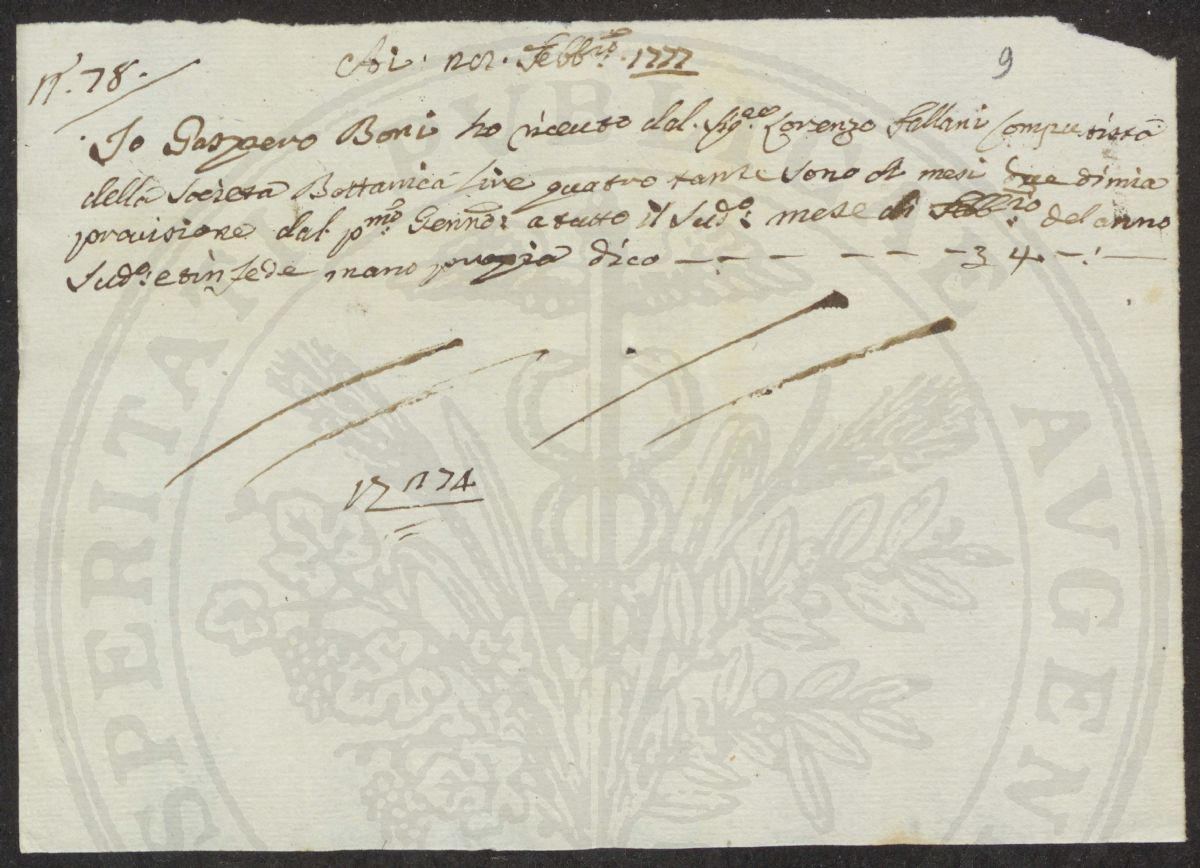 n.° 78.
Febb.ro 1777
9
Io Gaspero Boni ho riceuto dal. Sig.re Lorenzo Fallani Computista
della Societa Bottanica Lire quatro tante sono di mesi due di mia
provisione dal p.mo Genno: a tutto il Sud.o: mese di Febb.ro del anno
Sud.o: e in fede mano propia dico — — — — — — 3 4 — : —
17 n 74
PROSPERITATI PUBLICAE AVGEN